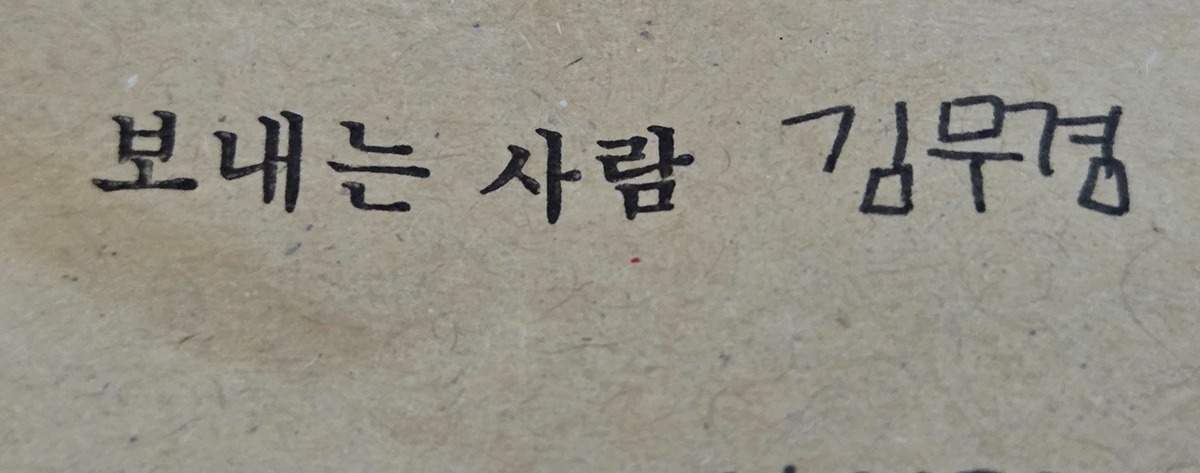 보내는 사람 김무경